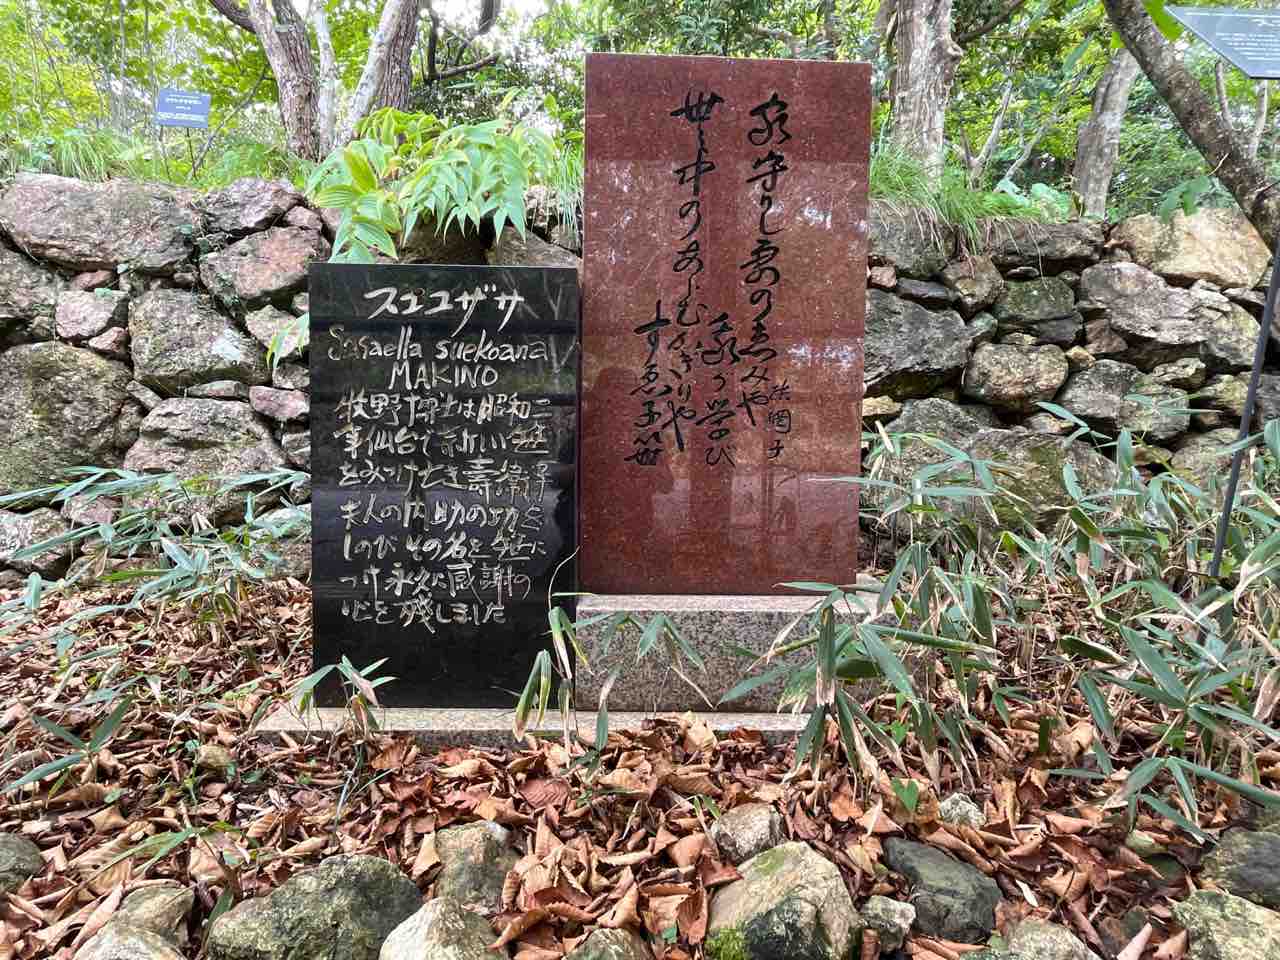 スヱコザサ
Sasaella suekoana
MAKINO
牧野博士は昭和二
年仙台で新しい笹
をみつけたとき壽衛子
夫人の内助の功を
しのび その名を笹に
つけ永久に感謝の
心を残しました
家守りし妻の恵みや
我が学び
世の中のあらむかぎりや
すゑ子笹